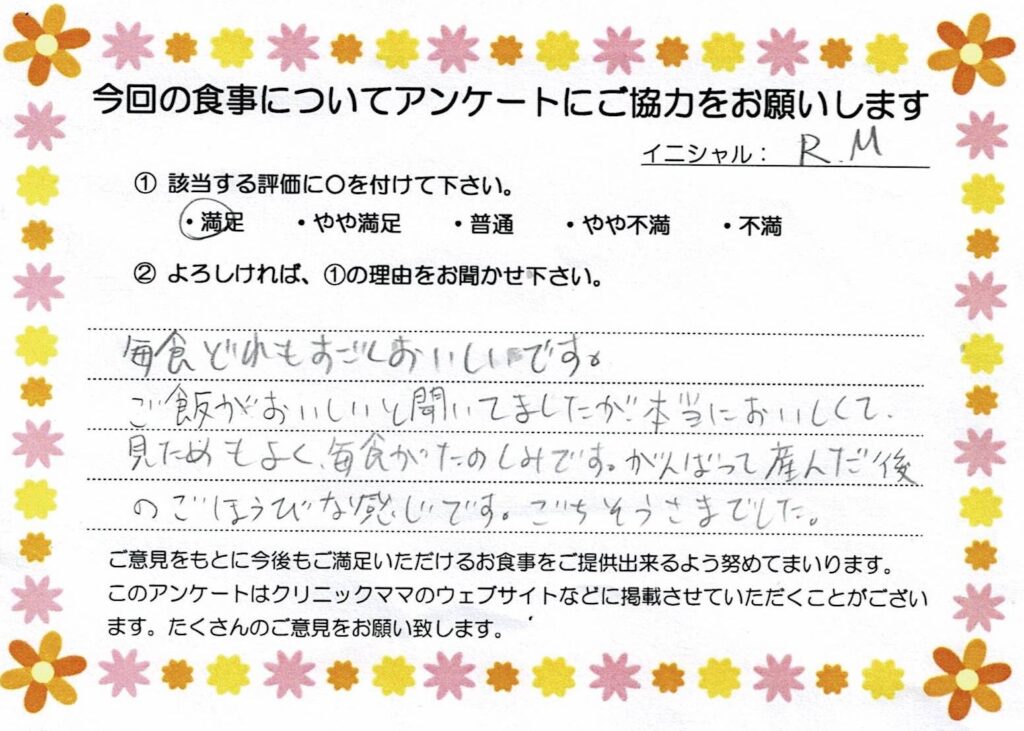 今回の食事についてアンケートにご協力をお願いします
イニシャル： R.M
① 該当する評価に〇を付けて下さい。
・満足 ・やや満足 ・普通 ・やや不満 ・不満
② よろしければ、①の理由をお聞かせ下さい。
毎食どれもすごくおいしいです。
ご飯がおいしいと聞いてましたが本当においしくて、
見ためもよく、毎食がたのしみです。がんばって産んだ後
のごほうびな感じです。ごちそうさまでした。
ご意見をもとに今後もご満足いただけるお食事をご提供出来るよう努めてまいります。
このアンケートはクリニックママのウェブサイトなどに掲載させていただくことがござい
ます。たくさんのご意見をお願い致します。